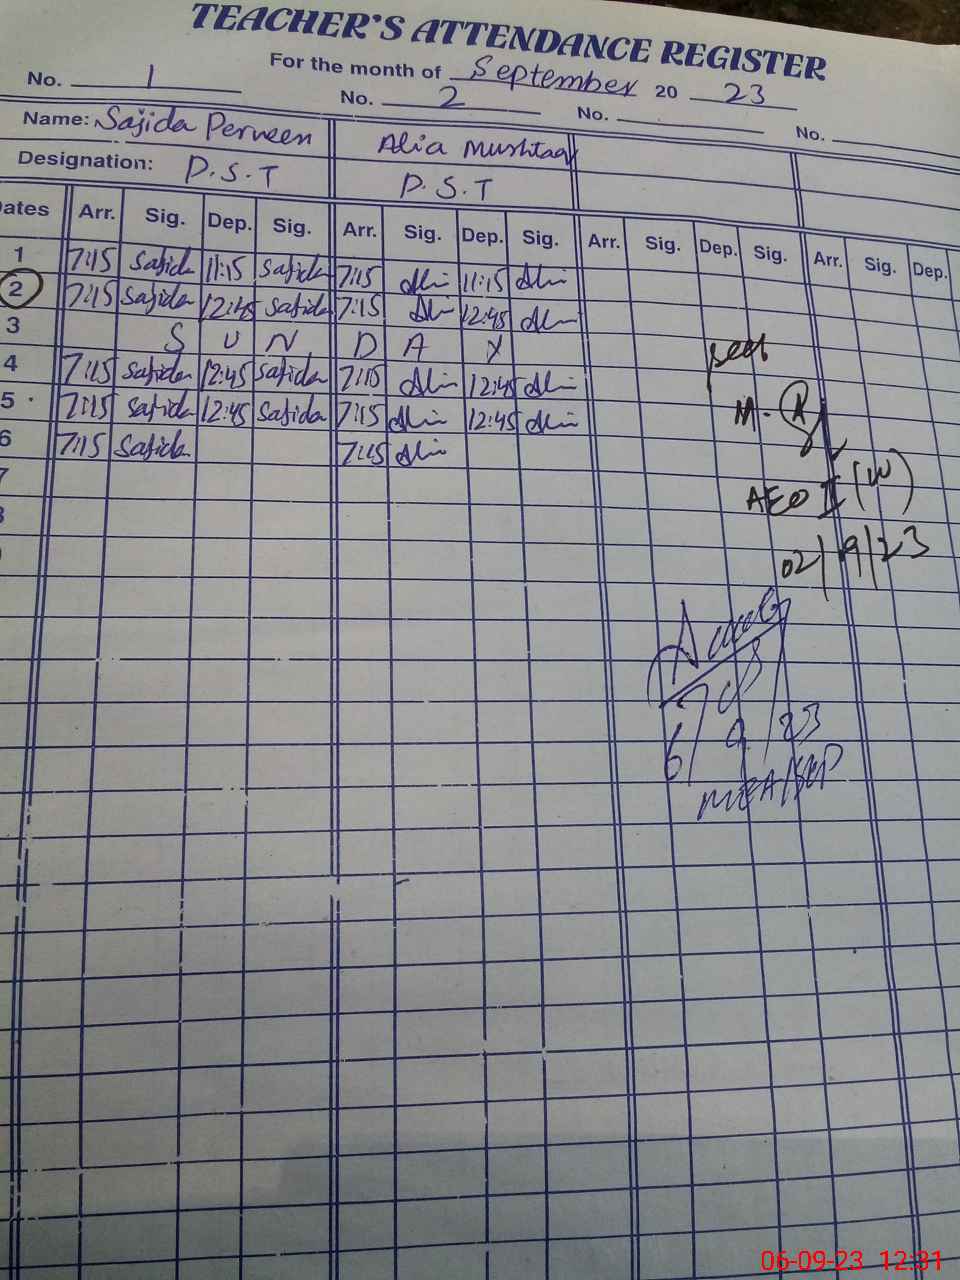 TEACHER'S ATTENDANCE REGISTER
For the month of September 20 23
No. 1 No. 2 No. No.
Name: Sajida Perveen Alia Mushtaq
Designation: P.S.T P.S.T
Dates Arr. Sig. Dep. Sig. Arr. Sig. Dep. Sig. Arr. Sig. Dep. Sig. Arr. Sig. Dep.
1 7:15 Sajida 11:15 Sajida 7:15 Alia 11:15 Alia
2 7:15 Sajida 12:45 Sajida 7:15 Alia 12:45 Alia
3 S U N D A Y
4 7:15 Sajida 12:45 Sajida 7:15 Alia 12:45 Alia
5 7:15 Sajida 12:45 Sajida 7:15 Alia 12:45 Alia
6 7:15 Sajida 7:15 Alia
7
8
AEO II (W)
02/9/23
6/9/23
06-09-23 12:31